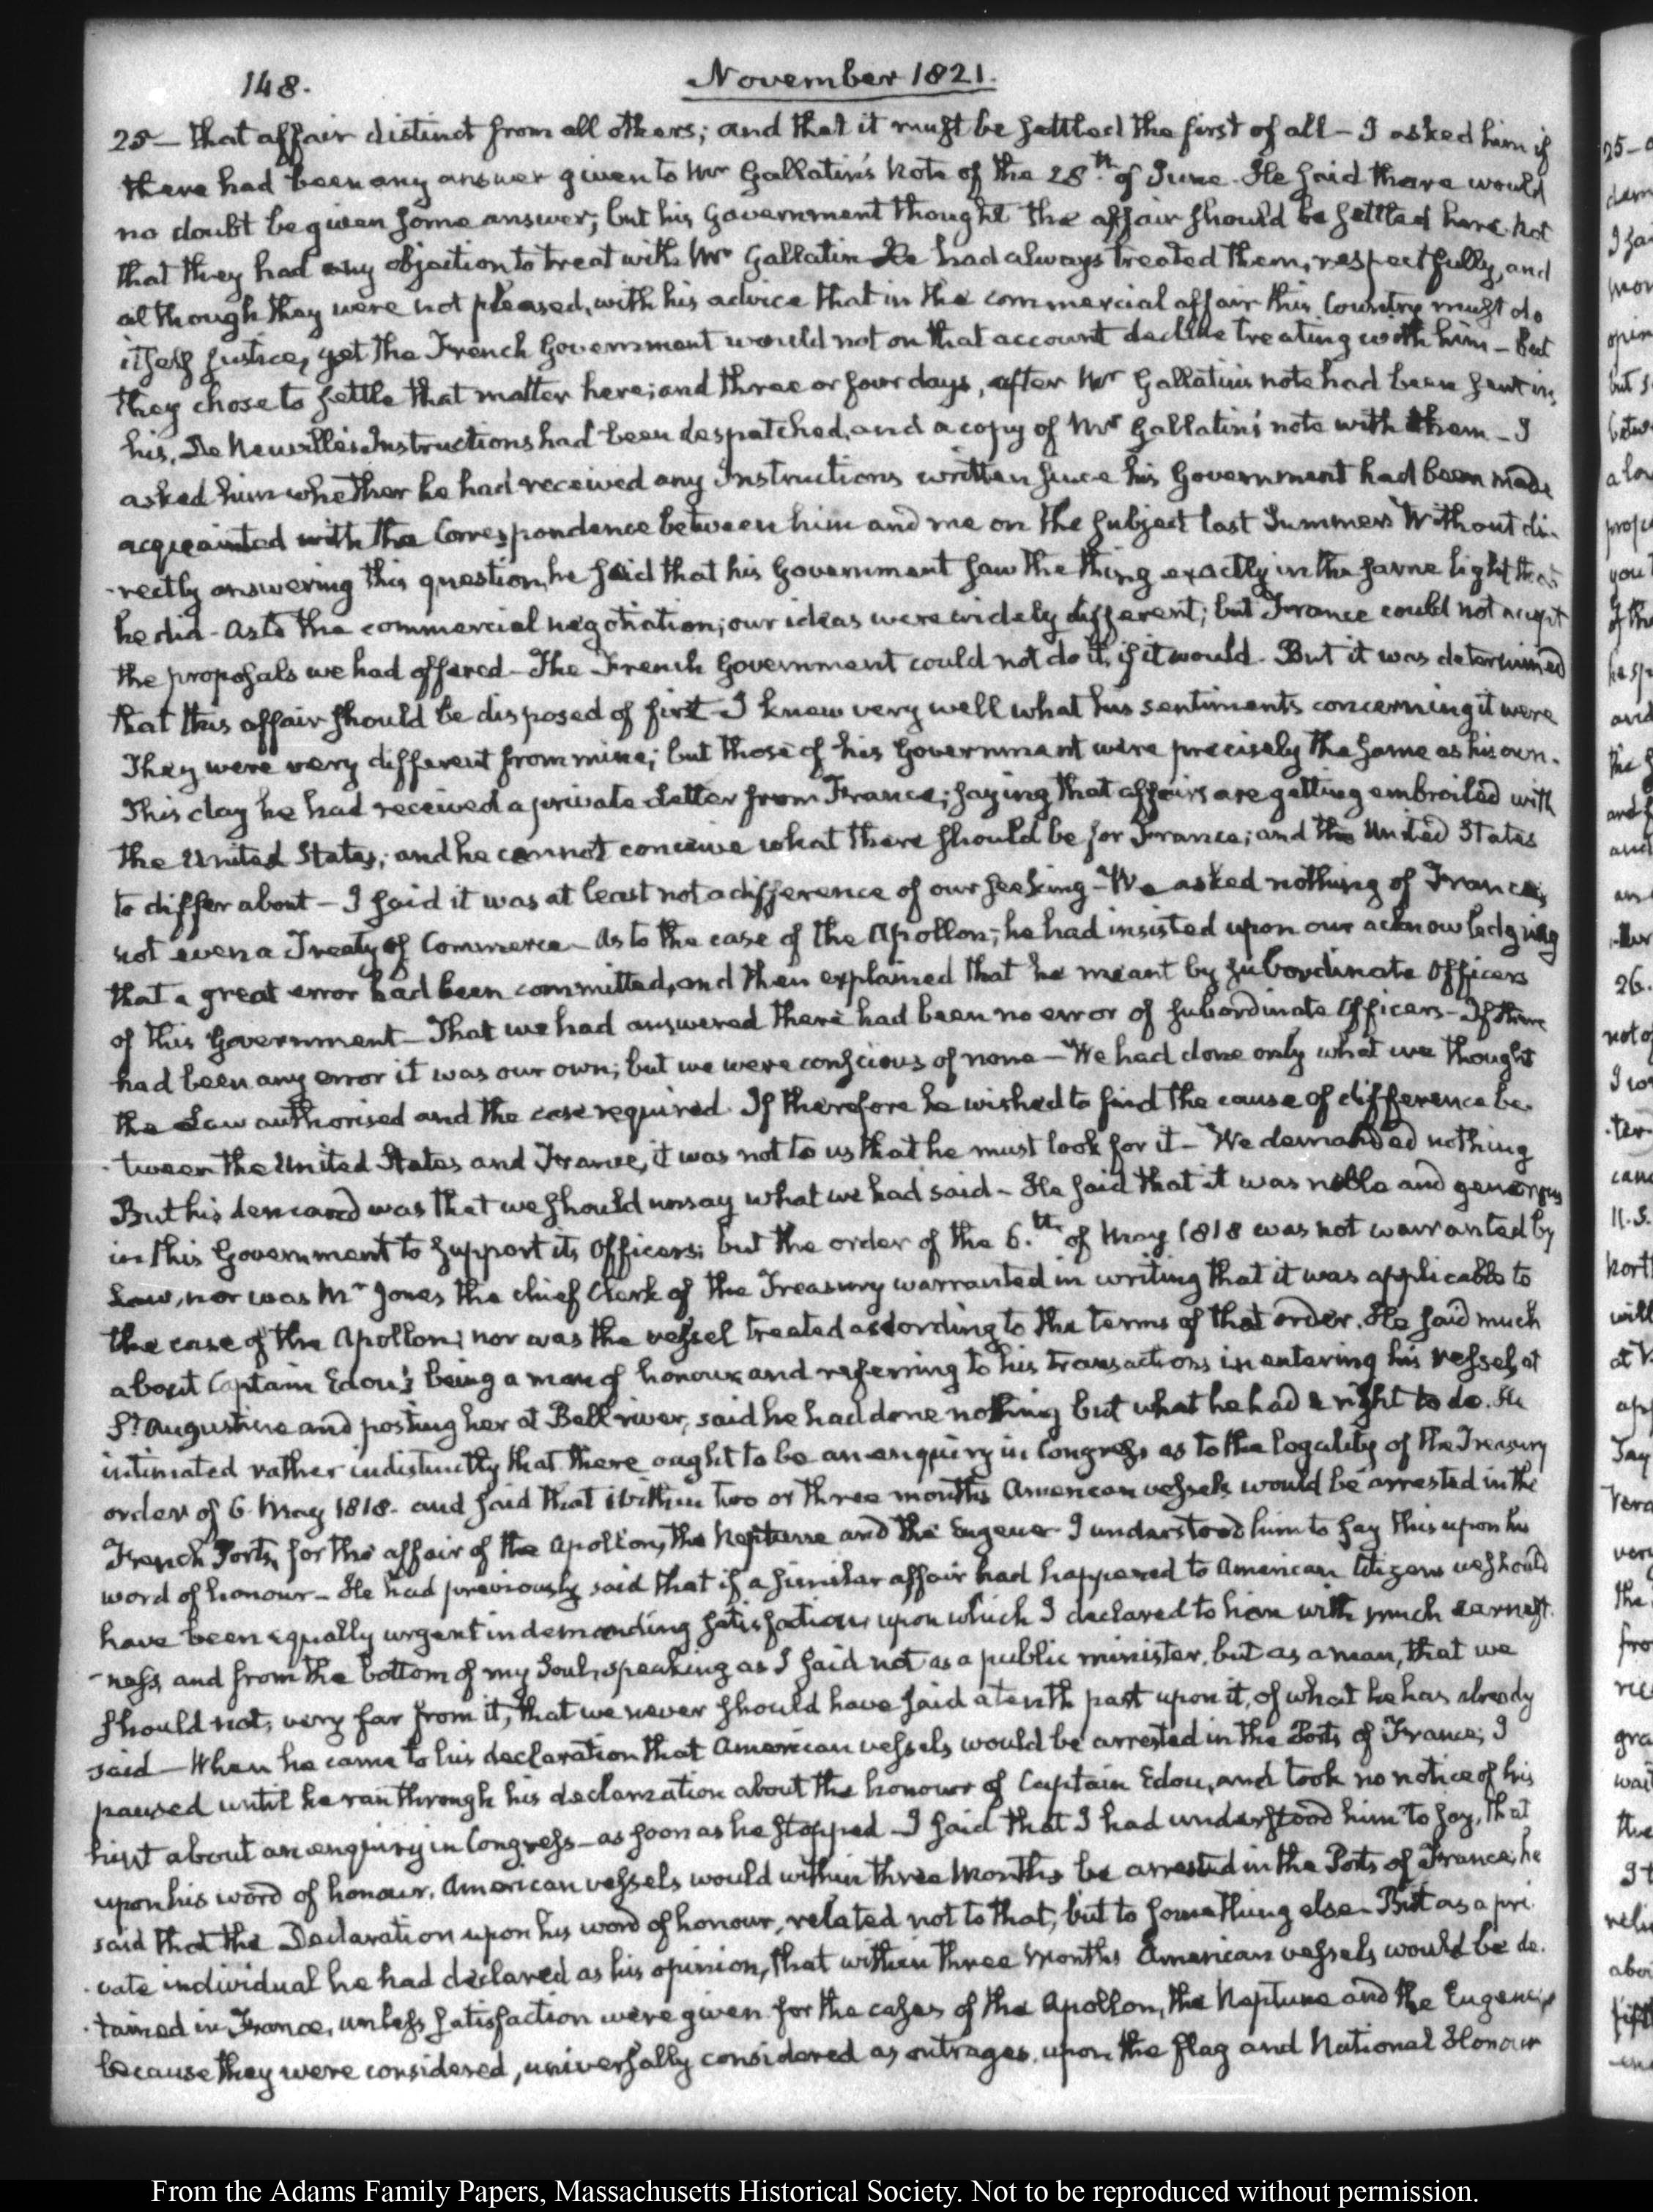 148.
November 1821.
25 — that affair distinct from all others; and that it must be settled the first of all — I asked him if
there had been any answer given to Mr Gallatin's Note of the 28.th of June. He said there would
no doubt be given some answer; but his Government thought the affair should be settled here. Not
that they had any objection to treat with Mr Gallatin He had always treated them, respectfully, and
although they were not pleased, with his advice that in the commercial affair this Country must do
itself justice, yet the French Government would not on that account decline treating with him — But
they chose to settle that matter here; and three or four days, after Mr Gallatin's note had been sent in,
his, De Neuville's Instructions had been despatched, and a copy of Mr Gallatin's note with them — I
asked him whether he had received any Instructions written since his Government had been made
acquainted with the Correspondence between him and me on the subject last Summer. Without di-
-rectly answering this question, he said that his Government saw the thing exactly in the same light that
he did - As to the commercial negotiation; our ideas were widely different; but France could not accept
the proposals we had offered — The French Government could not do it, if it would. But it was determined
that this affair should be disposed of first — I knew very well what his sentiments concerning it were
They were very different from mine; but those of his Government were precisely the same as his own.
This day he had received a private Letter from France; saying that affairs are getting embroiled with
the United States; and he cannot conceive what there should be for France; and the United States
to differ about — I said it was at least not a difference of our seeking — We asked nothing of France,
not even a Treaty of Commerce — As to the case of the Apollon; he had insisted upon our acknowledging
that a great error had been committed, and then explained that he meant by subordinate Officers
of this Government — That we had answered there had been no error of subordinate Officers — If there
had been any error it was our own; but we were conscious of none — We had done only what we thought
the Law authorised and the case required. If therefore he wished to find the cause of difference be-
-tween the United States and France, it was not to us that he must look for it — We demanded nothing
But his demand was that we should unsay what we had said — He said that it was noble and generous
in this Government to support its Officers; but the order of the 6.th of May 1818 was not warranted by
Law, nor was Mr Jones the chief Clerk of the Treasury warranted in writing that it was applicable to
the case of the Apollon; nor was the vessel treated according to the terms of that order. He said much
about Captain Edou's being a man of honour and referring to his transactions in entering his vessel, at
St. Augustine and posting her at Bell river, said he had done nothing but what he had a right to do. He
intimated rather indistinctly that there ought to be an enquiry in Congress as to the legality of the Treasury
order of 6 May 1818. and said that within two or three months American vessels would be arrested in the
French Ports, for the affair of the Apollon, the Neptune and the Eugene. I understood him to say this upon his
word of honour — He had previously said that if a similar affair had happened to American Citizens we should
have been equally urgent in demanding satisfaction, upon which I declared to him with much earnest-
-ness, and from the bottom of my Soul, speaking as I said not as a public minister, but as a man, that we
should not, very far from it, that we never should have said a tenth part upon it, of what he has already
said — When he came to his declaration that American vessels would be arrested in the Ports of France; I
paused until he ran through his declaration about the honour of Captain Edou, and took no notice of his
hint about an enquiry in Congress — as soon as he stopped — I said that I had understood him to say, that
upon his word of honour, American vessels would within three Months be arrested in the Ports of France, he
said that the Declaration upon his word of honour, related not to that, but to something else — But as a pri-
-vate individual he had declared as his opinion, that within three Months American vessels would be de-
-tained in France, unless satisfaction were given for the cases of the Apollon, the Neptune and the Eugene,
because they were considered, universally considered as outrages, upon the flag and National Honour
From the Adams Family Papers, Massachusetts Historical Society. Not to be reproduced without permission.